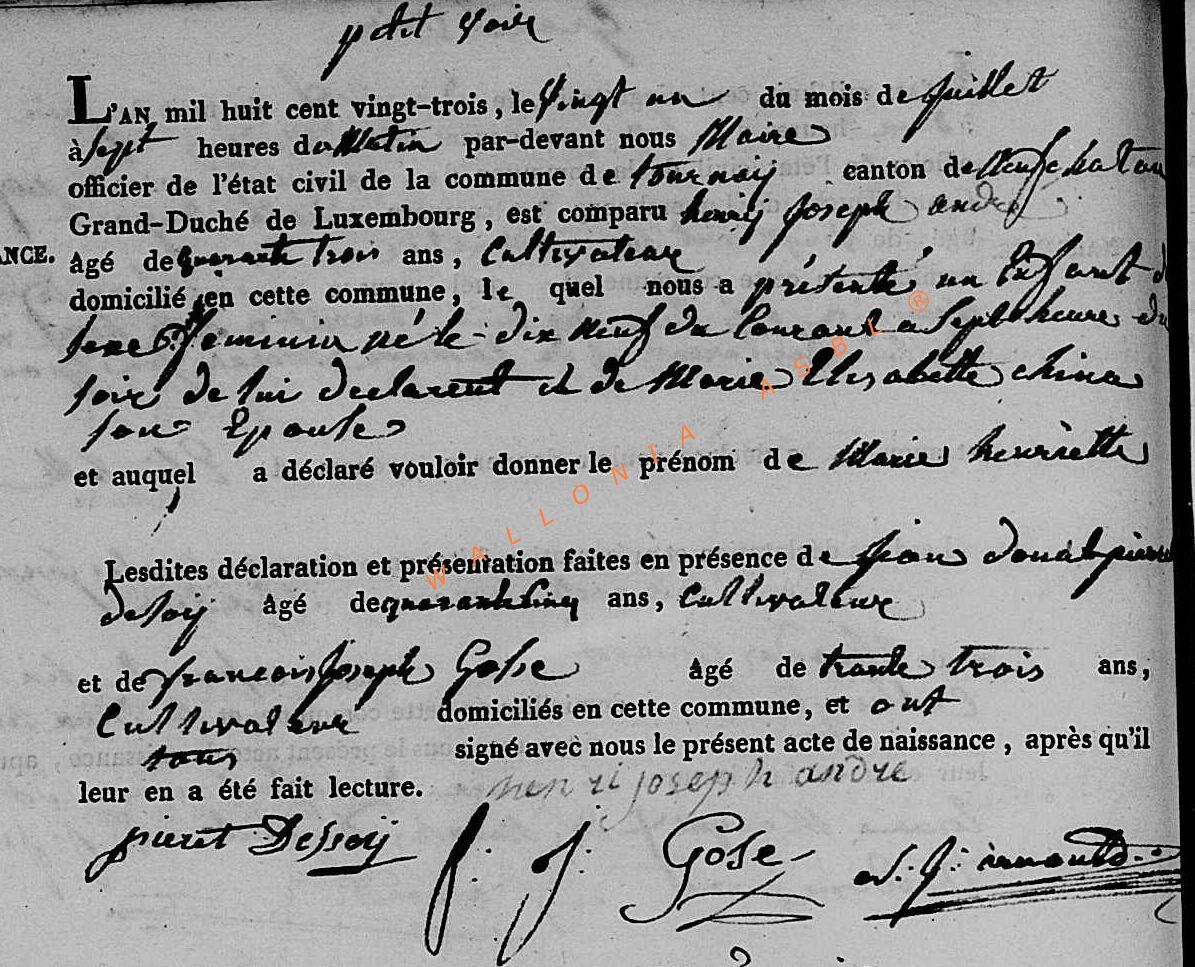 petit voir
L'AN mil huit cent vingt-trois, le vingt un du mois de juillet
à sept heures du Matin par-devant nous Maire
officier de l'état civil de la commune de tournay canton de Neufchatau
Grand-Duché de Luxembourg, est comparu henry joseph andre
NCE. âgé de quarante trois ans, Cultivateur
domicilié en cette commune, le quel nous a présenté un Enfant d
sexe feminin né le dix neuf du Courant a Sept heure du
soir de lui declarent et de Marie Elisabette china
son Epouse
et auquel a déclaré vouloir donner le prénom de Marie henriette
Lesdites déclaration et présentation faites en présence de jean donat pierre
desoÿ âgé de quarante cinq ans, Cultivateur
et de francois joseph Gosse âgé de trante trois ans,
Cultivateur domiciliés en cette commune, et ont
tous signé avec nous le présent acte de naissance, après qu'il
leur en a été fait lecture. henri joseph andre
pieret Dessoÿ f: j: Gose
WALLONIA ASBL ®